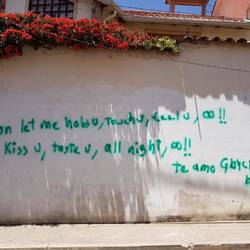 on let me hold u, touch u, feel u, ∞!!
Kiss u, taste u, all night, ∞!!
te amo